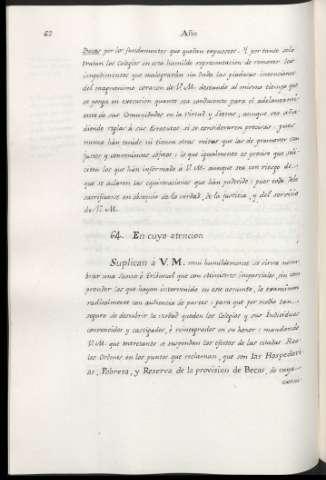 62 Año
Becas por los fundamentos que quedan expuestos. Y por tanto solo
tratan los Colegios en esta humilde representacion de remover los
impedimentos que malograrán sin duda las piadosas intenciones
del magnanimo corazon de V. M. deseando al mismo tiempo que
se ponga en execucion quanto sea conducente para el adelantami-
ento de sus Comunidades en la Virtud y Letras, aunque sea aña-
diendo reglas à sus Estatutos si se consideraren precisas; pues
nunca han tenido ni tienen otras miras que las de promover con
justos y convenientes objetos; lo que igualmente es preciso que soli-
citen los que han informado à V. M. aunque sea con riesgo de
que se aclaren las equivocaciones que han padecido; pues todo debe
sacrificarse en obsequio de la verdad, de la justicia, y del servicio
de V. M.
64. En cuya atencion
Suplican à V. M. muy humildemente se sirva nom-
brar una Junta ò Tribunal que con Ministros imparciales, sin com-
prender los que hayan intervenido en este asunto, lo examinen
radicalmente con audiencia de partes; para que por medio tan
seguro de descubrir la verdad queden los Colegios y sus Individuos
convencidos y castigados, ò reintegrados en su honor: mandando
V. M. que entretanto se suspendan los efectos de las citadas Rea-
les Ordenes en los puntos que reclaman, que son las Hospederi-
as, Pobreza, y Reserva de la provision de Becas, de cuya